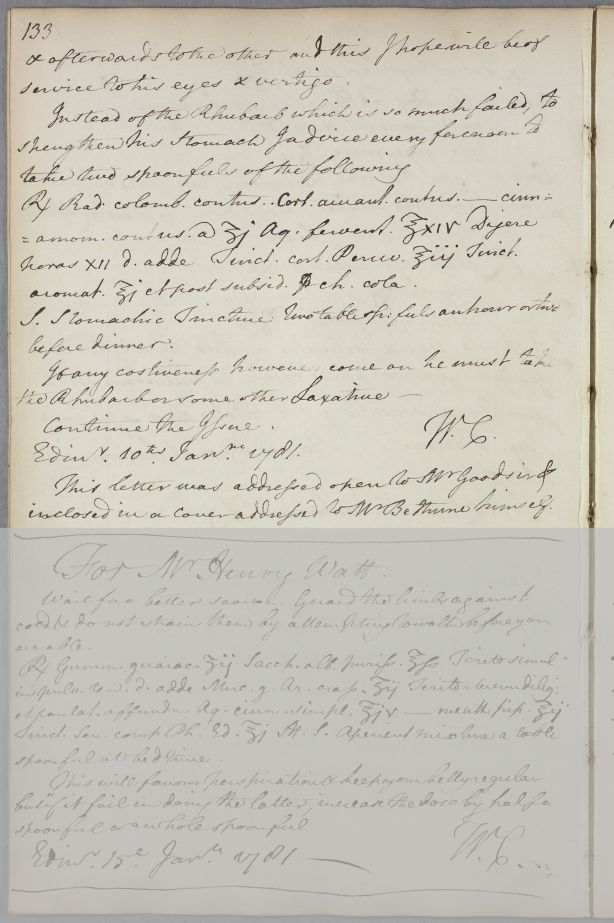 133
& afterwards to the other and this I hope will be of
service to his eyes & vertigo.
Instead of the Rhubarb which is so much failed, to
strengthen his Stomach I advise every forenoon to
take two spoonfuls of the following
℞ Rad. colomb. contus. . Cort. aurant. contus. — cinn=
=amom. contus. a ʒj Aq. fervent. ℥XIV Digere
horas XII d. adde Tinct. cort. Peruv. ℥iij Tinct.
aromat. ℥j et post subsid. ch. cola.
S. Stomachic Tincture two table sp:fuls an hour or two
before dinner.
If any costiveness however come on he must take
the Rhubarb or some other Laxative —
Continue the Issue.
W. C.
Edinr. 10th Janry. 1781.
This letter was addressed open to Mr Goodsir &
inclosed in a cover addressed to Mr Bethune himself.
For Mr Henry Watt.
Wait for a better season. Guard the limbs against
cold & do not strain them by attempting to walk before you
are able.
℞ Gumm. guaiac. ʒij Sacch. alb. puriss. ℥ss Terito simul
in pulv. ten. d. adde Muc. g. Ar. ℥ij Terito iterum dilig.
et paulat. affunde Aq. cinn. simpl. ℥jv — menth. pip. ℥ij
Tinct. sen. comp. Ph. Ed. ℥j M. S. Aperient mixture a table
spoonful at bedtime.
This will favour perspiration & keep your belly regular
but if it fail in doing the latter, increase the dose by half a
spoonful or a whole spoonful
W. C.
Edinr. 15th Janry. 1781 —